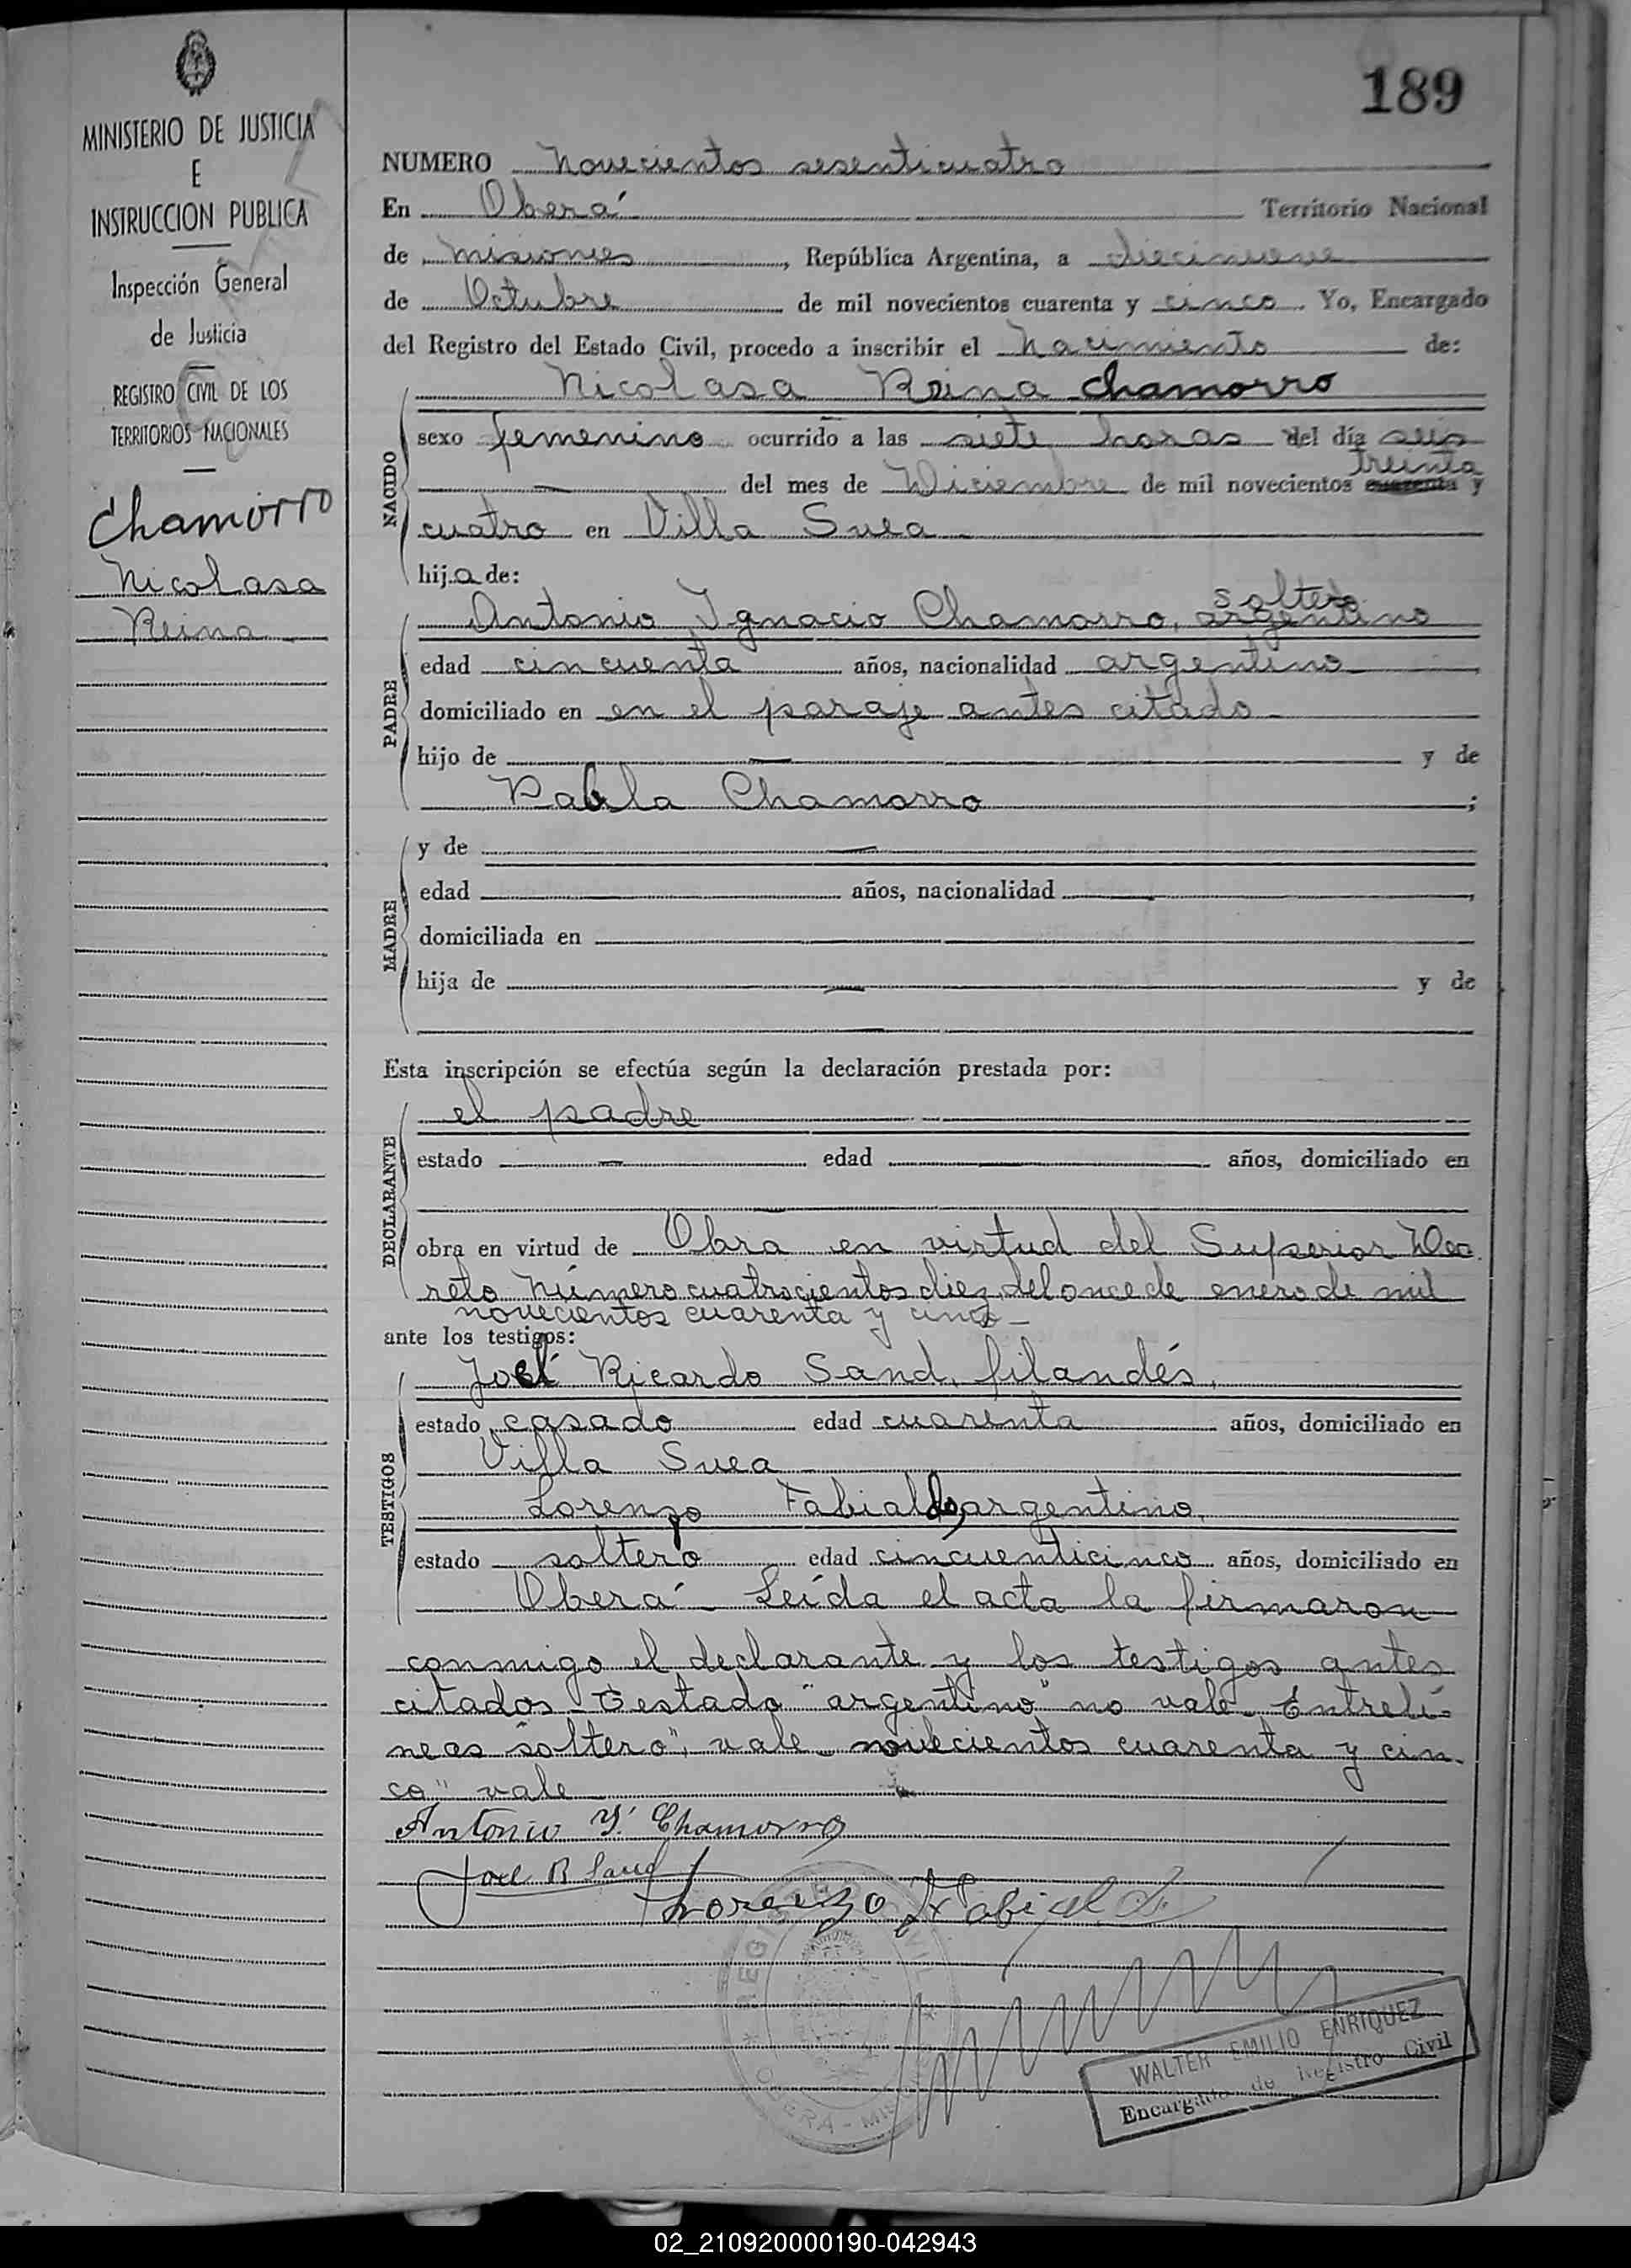 189
MINISTERIO DE JUSTICIA
E
INSTRUCCION PUBLICA
Inspección General
de Justicia
REGISTRO CIVIL DE LOS
TERRITORIOS NACIONALES
Chamorro
Nicolasa
Reina
NUMERO Novecientos sesenticuatro
En Oberá Territorio Nacional
de Misiones, República Argentina, a diecinueve
de Octubre de mil novecientos cuarenta y cinco. Yo, Encargado
del Registro del Estado Civil, procedo a inscribir el Nacimiento de:
NACIDO
Nicolasa Reina Chamorro
sexo femenino ocurrido a las siete horas del día seis
treinta
del mes de Diciembre de mil novecientos cuarenta y
cuatro en Villa Suea
hija de:
PADRE
soltero
Antonio Ignacio Chamorro, argentino
edad cincuenta años, nacionalidad argentino
domiciliado en en el paraje antes citado
hijo de — y de
Pabla Chamorro ;
MADRE
y de —
edad años, nacionalidad
domiciliada en
hija de — y de
Esta inscripción se efectúa según la declaración prestada por:
DECLARANTE
el padre
estado — edad — años, domiciliado en
obra en virtud de Obra en virtud del Superior Dec
reto Número cuatrocientos diez del once de enero de mil
novecientos cuarenta y cinco
ante los testigos:
TESTIGOS
Joel Ricardo Sand, filandés,
estado casado edad cuarenta años, domiciliado en
Villa Suea
Lorenzo Fabialdo, argentino,
estado soltero edad cincuenticinco años, domiciliado en
Oberá - Leída el acta la firmaron
conmigo el declarante y los testigos antes
citados - Testado "argentino" no vale - Entrelí=
neas "soltero", vale - novecientos cuarenta y cin-
co" vale
Antonio Y. Chamorro
Joel R Sand
Lorenzo Fabialdo
REGISTRO CIVIL
OBERA - MISIONES
WALTER EMILIO ENRIQUEZ
Encargado de Registro Civil
02_210920000190-042943